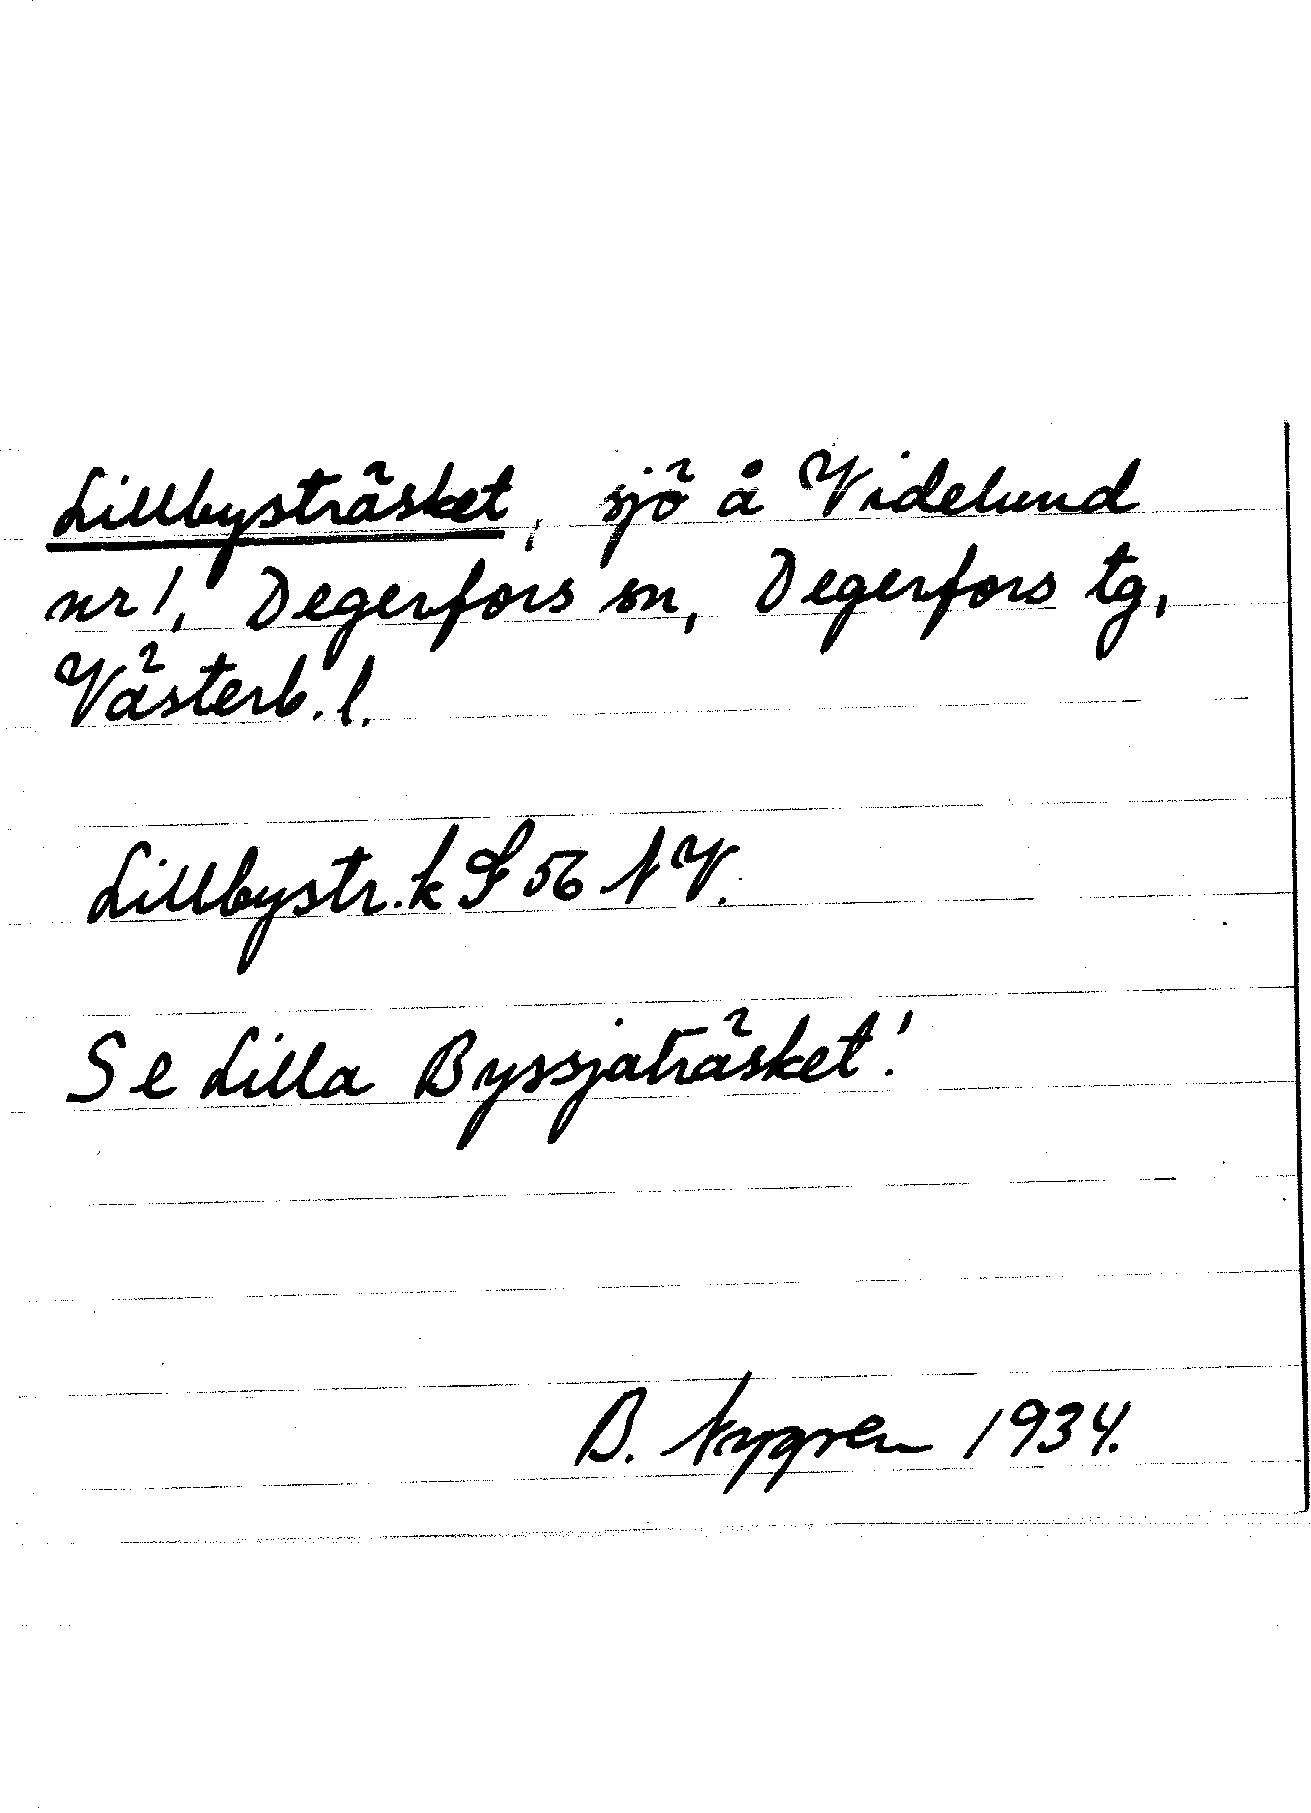 Lillbysträsket, sjö å Videlund
nr 1, Degerfors sn, Degerfors tg,
Västerb. l.
Lillbystr. k S 56 NV.
Se Lilla Byssjaträsket!
B. Nygren 1934.